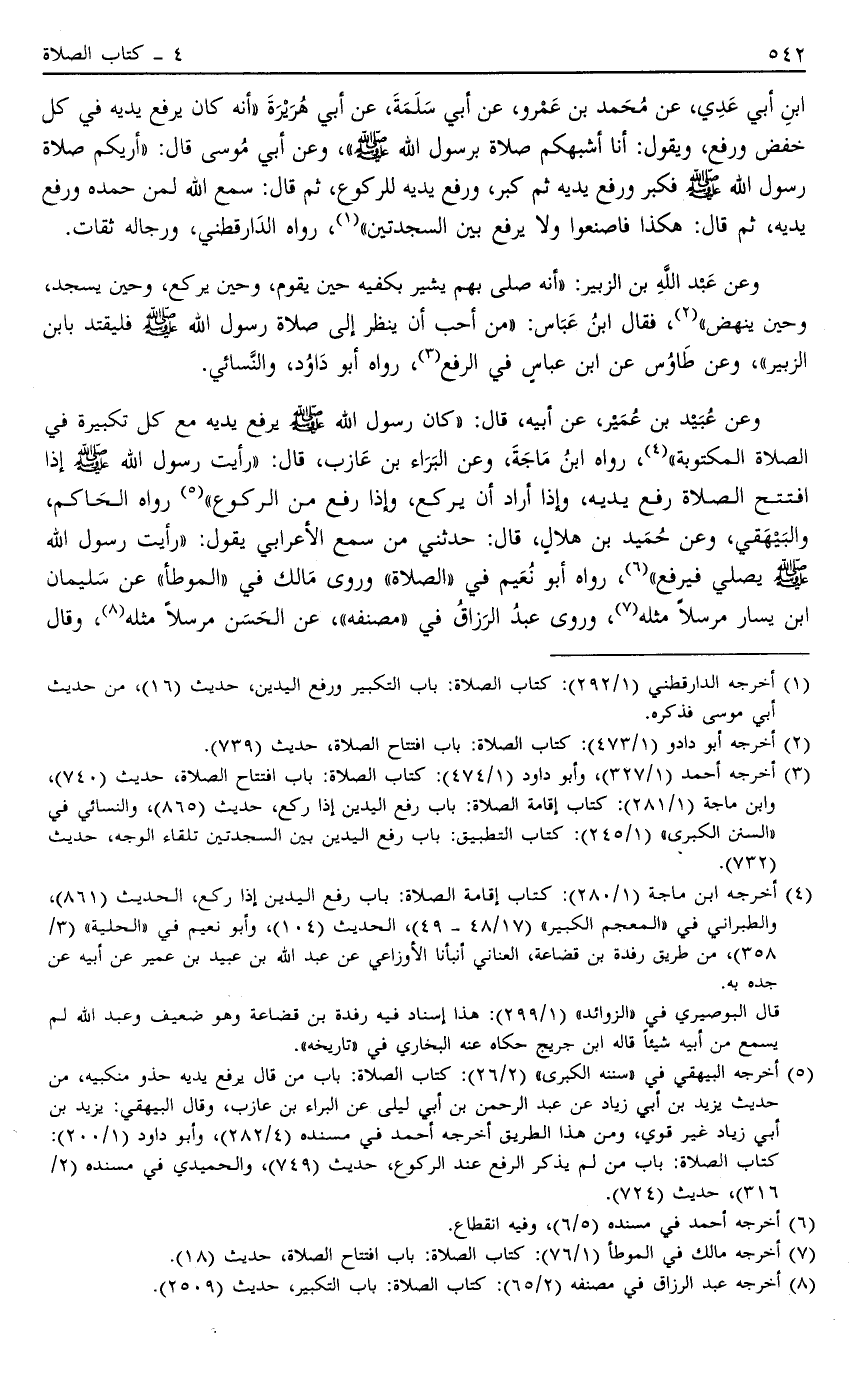 ٥٤٢ ٤ ـ كتاب الصلاة
ابنِ أبي عَدِي، عن مُحَمد بن عَمْرو، عن أبي سَلَمَةَ، عن أبي هُرَيْرَةَ «أنه كان يرفع يديه في كل
خفض ورفع، ويقول: أنا أشبهكم صلاة برسول الله ﷺ»، وعن أبي مُوسى قال: «أريكم صلاة
رسول الله ﷺ فكبر ورفع يديه ثم كبر، ورفع يديه للركوع، ثم قال: سمع الله لمن حمده ورفع
يديه، ثم قال: هكذا فاصنعوا ولا يرفع بين السجدتين»(١)، رواه الدَارقطني، ورجاله ثقات.
وعن عَبْد اللَّهِ بن الزبير: «أنه صلى بهم يشير بكفيه حين يقوم، وحين يركع، وحين يسجد،
وحين ينهض»(٢)، فقال ابنُ عَبَاس: «من أحب أن ينظر إلى صلاة رسول الله ﷺ فليقتد بابن
الزبير»، وعن طَاوُس عن ابن عباسٍ في الرفع(٣)، رواه أبو دَاوُد، والنَّسائي.
وعن عُبَيْد بن عُمَيْر، عن أبيه، قال: «كان رسول الله ﷺ يرفع يديه مع كل تكبيرة في
الصلاة المكتوبة»(٤)، رواه ابنُ مَاجَةَ، وعن البَرَاء بن عَازب، قال: «رأيت رسول الله ﷺ إذا
افتتح الصلاة رفع يديه، وإذا أراد أن يركع، وإذا رفع من الركوع»(٥) رواه الحَاكم،
والبَيْهَقي، وعن حُمَيد بن هلالٍ، قال: حدثني من سمع الأعرابي يقول: «رأيت رسول الله
ﷺ يصلي فيرفع»(٦)، رواه أبو نُعَيم في «الصلاة» وروى مَالك في «الموطأ» عن سَليمان
ابن يسار مرسلاً مثله(٧)، وروى عبدُ الرَزاقُ في «مصنفه»، عن الحَسَن مرسلاً مثله(٨)، وقال
(١) أخرجه الدارقطني (٢٩٢/١): كتاب الصلاة: باب التكبير ورفع اليدين، حديث (١٦)، من حديث
أبي موسى فذكره.
(٢) أخرجه أبو دادو (٤٧٣/١): كتاب الصلاة: باب افتتاح الصلاة، حديث (٧٣٩).
(٣) أخرجه أحمد (٣٢٧/١)، وأبو داود (٤٧٤/١): كتاب الصلاة: باب افتتاح الصلاة، حديث (٧٤٠)،
وابن ماجة (٢٨١/١): كتاب إقامة الصلاة: باب رفع اليدين إذا ركع، حديث (٨٦٥)، والنسائي في
«السنن الكبرى» (٢٤٥/١): كتاب التطبيق: باب رفع اليدين بين السجدتين تلقاء الوجه، حديث
(٧٣٢).
(٤) أخرجه ابن ماجة (٢٨٠/١): كتاب إقامة الصلاة: باب رفع اليدين إذا ركع، الحديث (٨٦١)،
والطبراني في «المعجم الكبير» (٤٨/١٧ ـ ٤٩)، الحديث (١٠٤)، وأبو نعيم في «الحلية» (٣/
٣٥٨)، من طريق رفدة بن قضاعة، العناني أنبأنا الأوزاعي عن عبد الله بن عبيد بن عمير عن أبيه عن
جده به.
قال البوصيري في «الزوائد» (٢٩٩/١): هذا إسناد فيه رفدة بن قضاعة وهو ضعيف وعبد الله لم
يسمع من أبيه شيئاً قاله ابن جريج حكاه عنه البخاري في «تاريخه».
(٥) أخرجه البيهقي في «سننه الكبرى» (٢٦/٢): كتاب الصلاة: باب من قال يرفع يديه حذو منكبيه، من
حديث يزيد بن أبي زياد عن عبد الرحمن بن أبي ليلى عن البراء بن عازب، وقال البيهقي: يزيد بن
أبي زياد غير قوي، ومن هذا الطريق أخرجه أحمد في مسنده (٢٨٢/٤)، وأبو داود (٢٠٠/١):
كتاب الصلاة: باب من لم يذكر الرفع عند الركوع، حديث (٧٤٩)، والحميدي في مسنده (٢/
٣١٦)، حديث (٧٢٤).
(٦) أخرجه أحمد في مسنده (٦/٥)، وفيه انقطاع.
(٧) أخرجه مالك في الموطأ (٧٦/١): كتاب الصلاة: باب افتتاح الصلاة، حديث (١٨).
(٨) أخرجه عبد الرزاق في مصنفه (٦٥/٢): كتاب الصلاة: باب التكبير، حديث (٢٥٠٩).